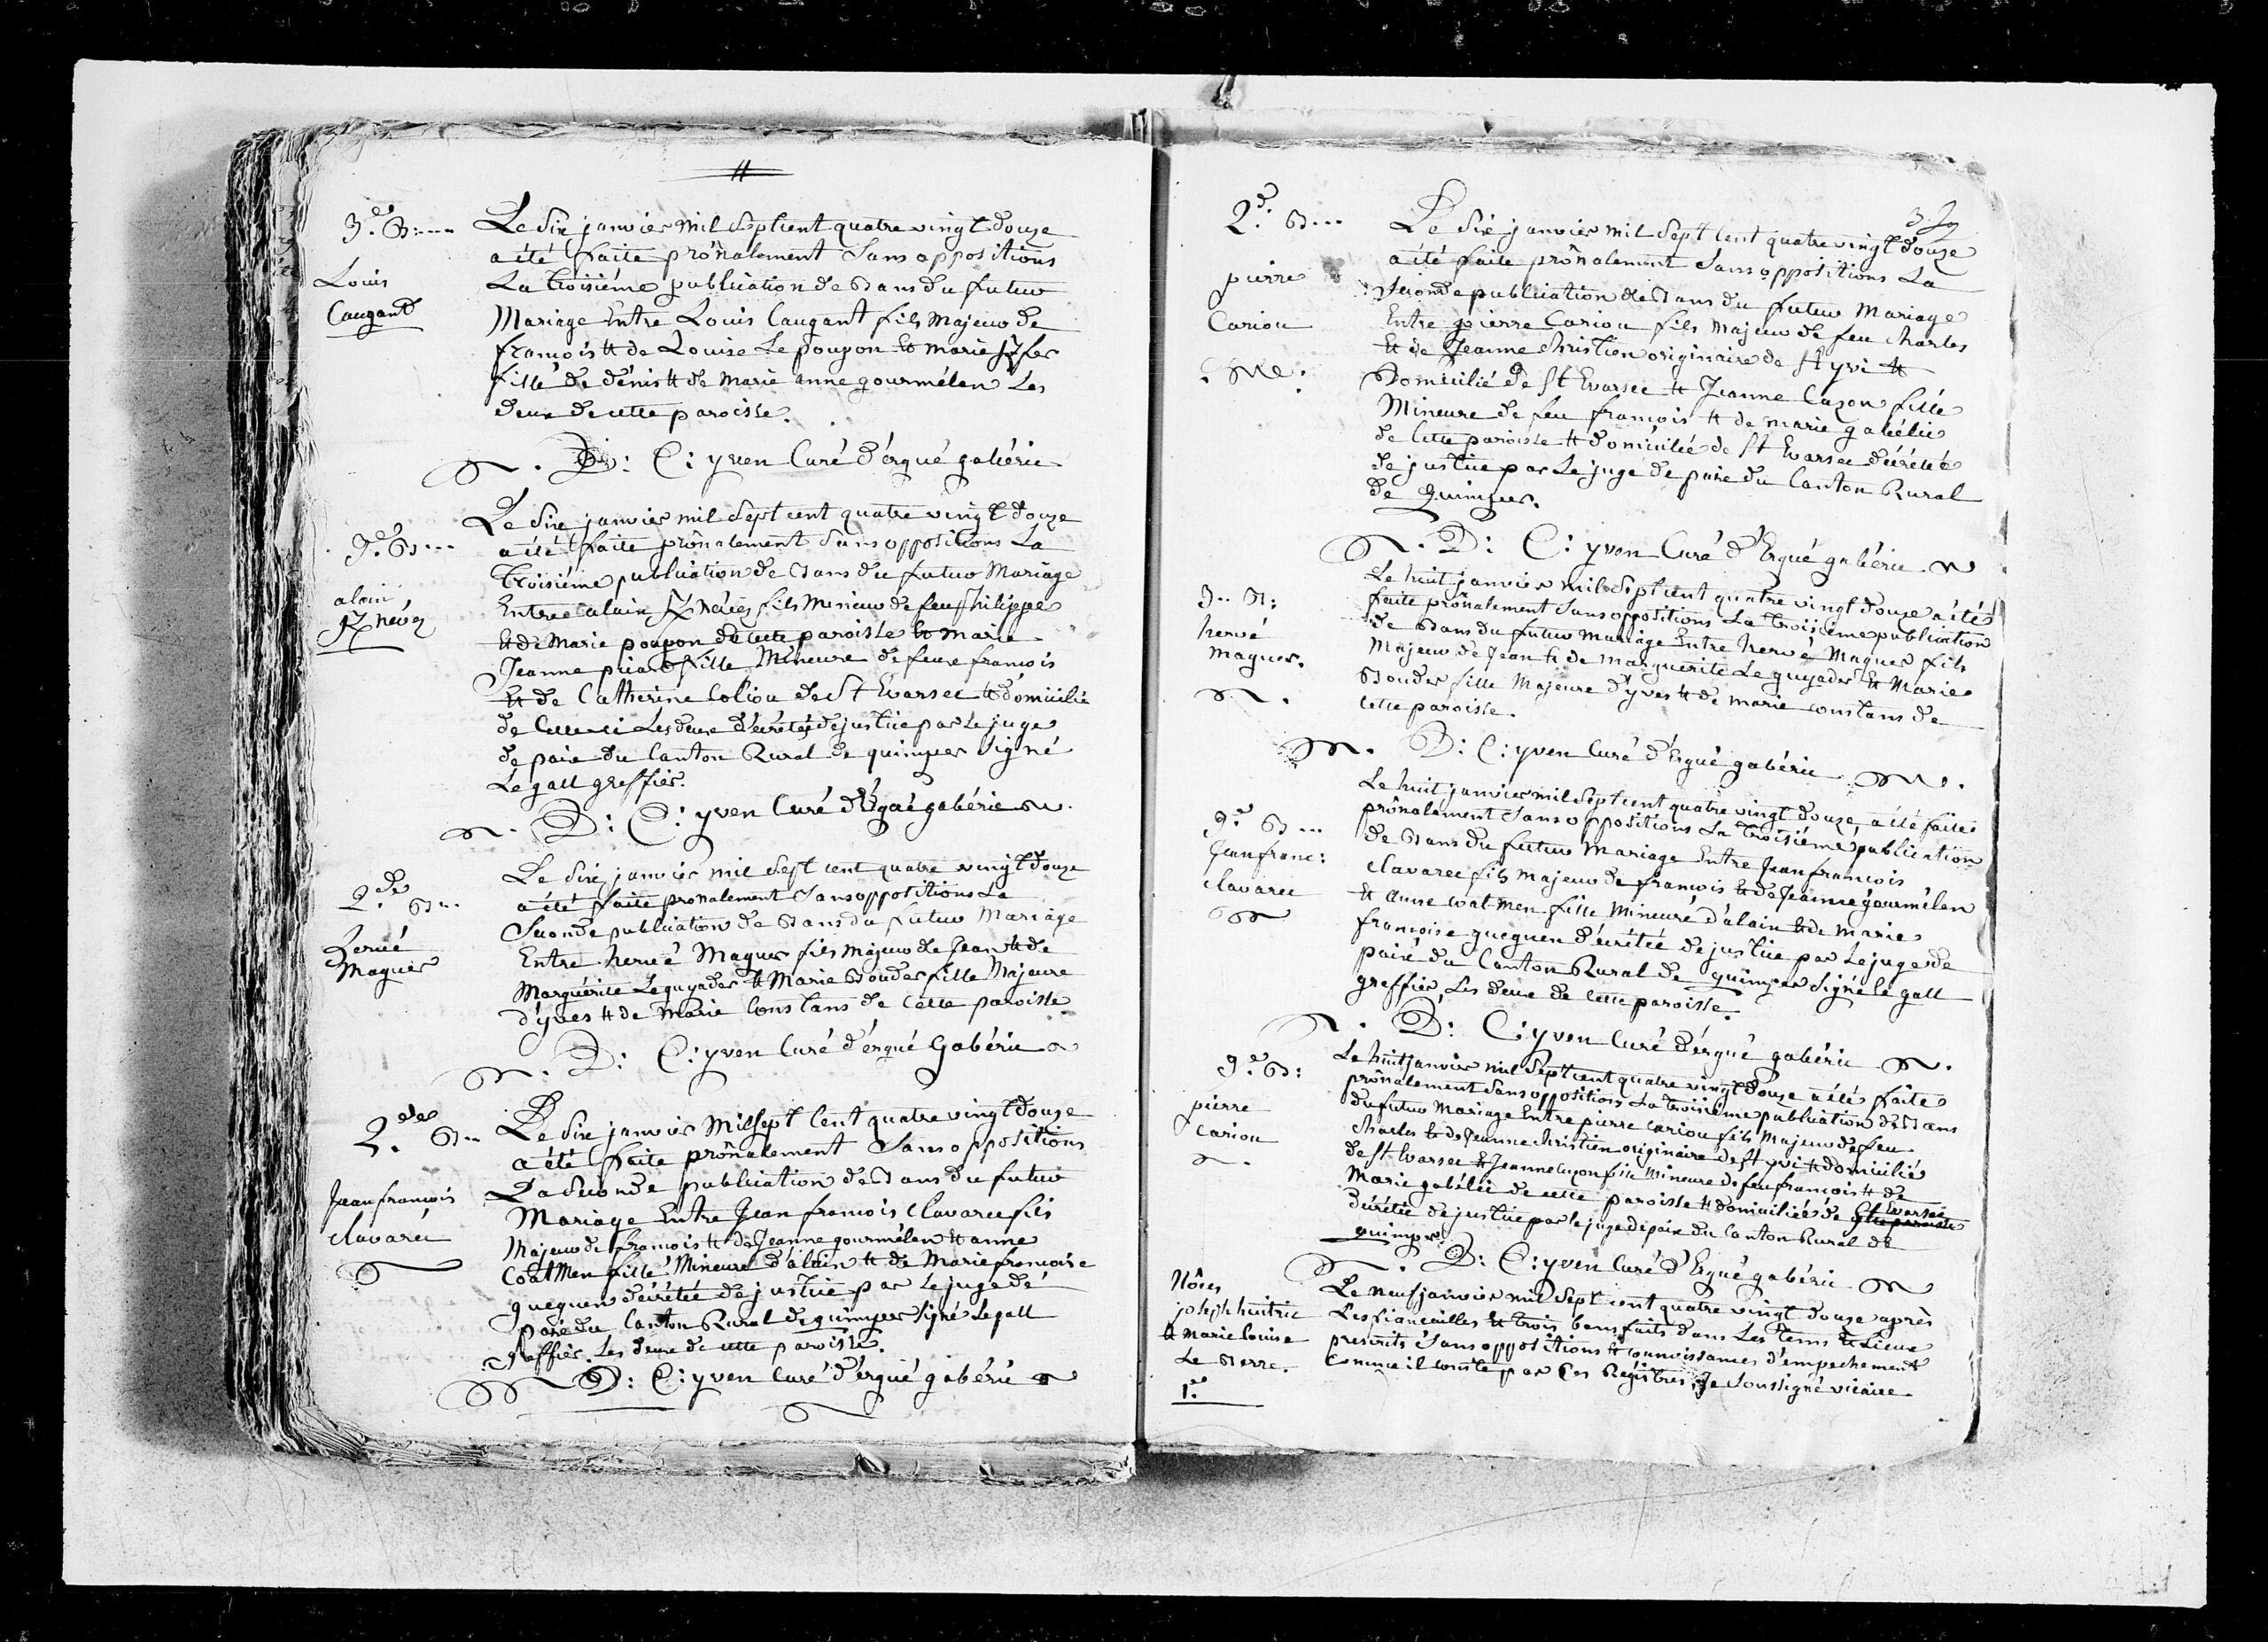 3.e B:---
Louis
Caugant
Le six janvier mil Sept cent quatre vingt douze
a été faite prônalement Sans oppositions
La troisiéme publication de Bans du futur
Mariage Entre Louis Caugant fils Majeur de
francois & de Louise Le poupon & marie
fille de dénis & de Marie anne gourmélen Les
deux de cette paroisse.
D: C: yven Curé d'érgué gabéric
3.e B:---
alain
Le six janvier mil Sept cent quatre vingt douze
a été faite prônalement Sans oppositions La
troisiéme publication de Bans du futur Mariage
Entre alain fils Mineur de feu Philippe
& de Marie poupon de cette paroisse & marie
Jeanne fille Mineure de feue francois
& de Catherine Coliou de St Evarsec & domicilié
de Celle ci Les deux décrétés de justice par Le juge
de paix du Canton Rural de quimper Signé
Le gall greffier.
D: C: yven Curé d'Ergué gabéric
2.de B---
hervé
Maguer
Le six janvier mil Sept cent quatre vingt douze
a été faite pronalement Sans oppositions La
Seconde publication de Bans du futur Mariage
Entre hervé Maguer fils Majeur de Jean & de
Marguérite Le guyader & Marie Bouder fille Majeure
d'yves & de Marie Constans de Cette paroisse
D: C: yven Curé d'érgué Gabéric
2.de B--
Jean francois
clavarec
Le six janvier Mil Sept Cent quatre vingt douze
a été faite prônalement Sans oppositions
La Seconde publication de Bans du futur
Mariage Entre Jean francois Clavarec fils
Majeur de francois & de Jeanne gourmélen & anne
Coatmen fille Mineure d'alain & de Marie francoise
gueguen décrétée de justice par Le juge de
paix du Canton Rural de quimper Signé Le gall
greffier. Les deux de cette paroisse.
D: C: yven Curé d'érgué gabéric
2.d B---
pierre
Cariou
Le six janvier mil Sept Cent quatre vingt douze
a été faite prônalement Sans oppositions La
Seconde publication de Bans du futur Mariage
Entre pierre Cariou fils Majeur de feu charles
& de Jeanne christien originaire de St yvi &
Domicilié de St Evarsec & Jeanne Cuzon fille
Mineure de feu francois & de marie gabélic
de Cette paroisse & domiciliée de St Evarsec décrétée
de justice par Le juge de paix du Canton Rural
de quimper.
D: C: yven Curé d'Ergué gabéric
3.. B:
hervé
maguer.
Le huit janvier mil Sept cent quatre vingt douze a été
faite prônalement Sans oppositions La troisieme publication
de Bans du futur Mariage Entre hervé Maguer fils
Majeur de Jean & de Marguerite Le guyader & Marie
Bouder fille Majeure d'yves & de Marie constans de
cette paroisse.
D: C: yven Curé d'Ergué gabéric
3.e B---
Jean franc:
clavarec
Le huit janvier mil Sept cent quatre vingt douze, a été faite
prônalement Sans oppositions La troisiéme publication
de Bans du futur Mariage Entre Jean francois
Clavarec fils majeur de francois & de Jeanne gourmélen
& Anne Coatmen fille Mineure d'alain & de Marie
francoise gueguen décrétée de justice par Le juge de
paix du Canton Rural de quimper Signé le gall
greffier, Les deux de cette paroisse.
D: C: yven Curé d'érgué gabéric
3.e B:
pierre
cariou
Le huit janvier mil Sept cent quatre vingt douze a été faite
prônalement Sans oppositions La troisiéme publication de Bans
du futur Mariage Entre pierre Cariou fils Majeur de feu
charles & de Jeanne christien originaire de St yvi & domicilié
de St Evarsec & Jeanne Cuzon fille mineure de feu francois & de
Marie gabélic de cette paroisse & domiciliée de St Evarsec
décrétée de justice par le juge de paix du Canton Rural de
quimper
D: C: yven Curé d'Ergué gabéric
Nôces
joseph huitric
& Marie Louise
Le Berre.
1.e
Le neuf janvier mil Sept cent quatre vingt douze après
Les fiancailles & trois bans faits dans Les tems & Lieux
prescrits Sans oppositions & connoissances d'empechement
Comme il conste par Ces Régistres, Je Soussigné vicaire